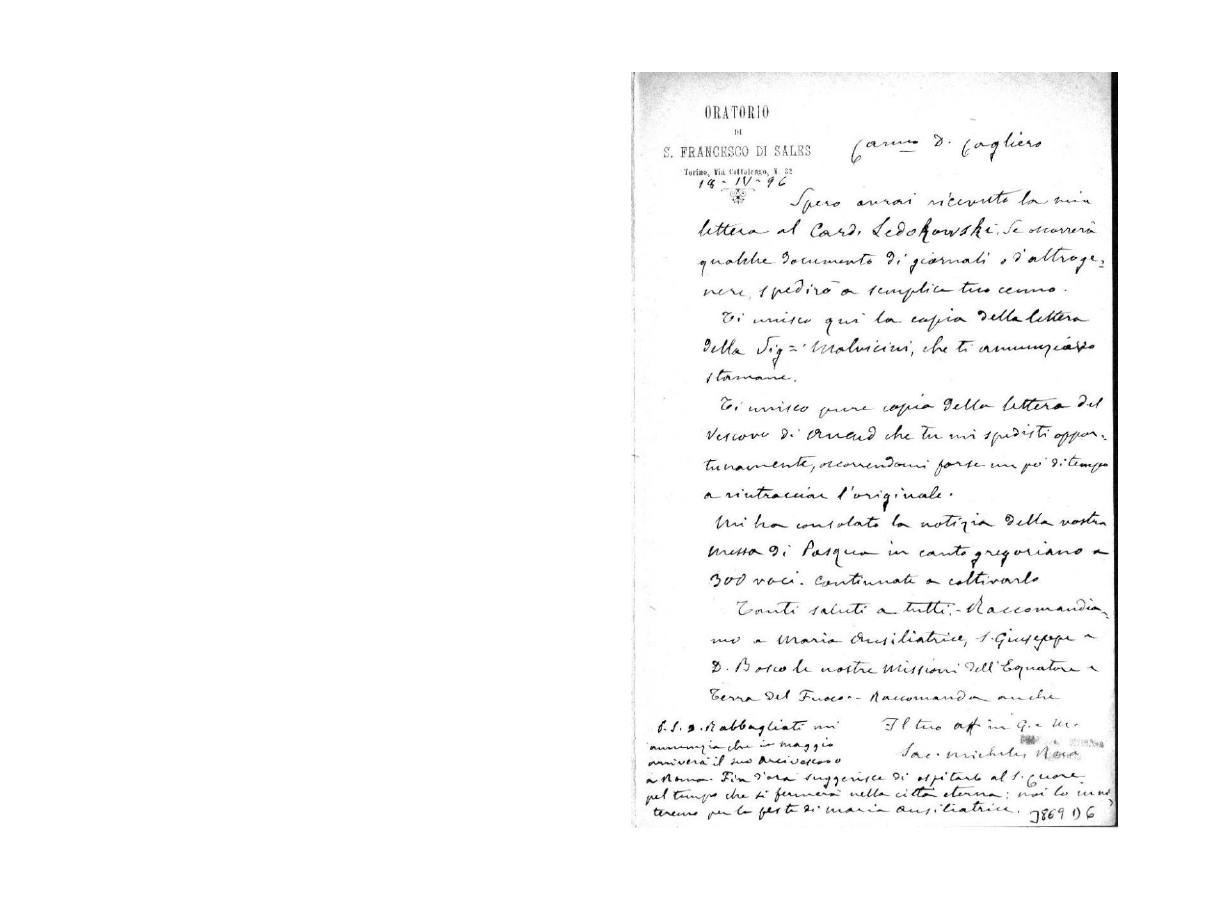 ORATORIO
DI
S. FRANCESCO DI SALES
Torino, Via Cottolengo, N. 32
18-IV-96
Carmo D. Cagliero
Spero avrai ricevuto la mia
lettera al Card. Ledokowski. Se occorrerà
qualche documento di giornali o d'altro ge-
nere, spedirò a semplice tuo cenno.
Ti unisco qui la copia della lettera
della Sig= Malvicini, che ti annunziavo
stamane.
Ti unisco pure copia della lettera del
Vescovo di che tu mi spedisti oppor-
tunamente, occorrendomi forse un po' di tempo
a rintracciar l'originale.
Mi ha consolato la notizia della vostra
messa di Pasqua in canto gregoriano a
300 voci. Continuate a coltivarlo
Tanti saluti a tutti. - Raccomandia-
mo a Maria Ausiliatrice, S. Giuseppe e
D. Bosco le nostre Missioni dell'Equatore e
Terra del Fuoco - Raccomanda anche
Il tuo aff in G. e M.
Sac. Michele Rua
P.S. D. Rabbagliati mi
annunzia che in maggio
arriverà il suo Arcivescovo
a Roma. Fin d'ora suggerisce di ospitarlo al S. Cuore
pel tempo che si fermerà nella città eterna; noi lo invi
teremo per la festa di Maria Ausiliatrice.
3869 D6